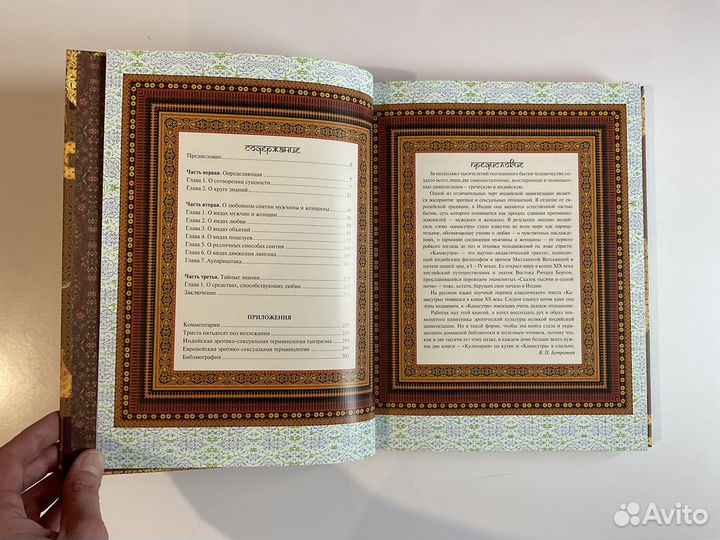 содержание
Предисловие 5
Часть первая. Определяющая 7
Глава 1. О сотворении сущности 7
Глава 2. О круге знаний
Часть вторая. О любовном соитии мужчины и женщины
Глава 1. О видах мужчин и женщин
Глава 2. О видах любви
Глава 3. О видах объятий
Глава 4. О видах поцелуев
Глава 5. О различных способах соития
Глава 6. О видах движения лингама
Глава 7. Аупариштака
Часть третья. Тайные знания
Глава 1. О средствах, способствующих любви
Заключение
ПРИЛОЖЕНИЯ
Комментарии
Триста пятьдесят поз возлежания
Индийская эротико-сексуальная терминология тантризма 293
Европейская эротико-сексуальная терминология 297
Библиография 303
предисловие
За несколько тысячелетий осознанного бытия человечество со-
здало всего лишь две самодостаточные, всесторонние и полноцен-
ные цивилизации – греческую и индийскую.
Одной из отличительных черт индийской цивилизации являет-
ся восприятие эротики и сексуальных отношений. В отличие от ев-
ропейской традиции, в Индии они являются естественной частью
бытия, суть которого понимается как процесс слияния противопо-
ложностей – мужского и женского. В результате именно индий-
ское слово «камасутра» стало известно во всем мире как нарица-
тельное, обозначающее учение о любви – о чувственных наслажде-
ниях, о гармонии соединения мужчины и женщины – от первого
робкого взгляда до поз и движений на вершине страсти.
«Камасутра» – это научно-дидактический трактат, написан-
ный индийским философом и врачом Маллацагой Ватсьяяной в
начале нашей эры, в I – IV веках. Ее открыл миру в конце XIX века
английский путешественник и знаток Востока Ричард Бертон,
прославившийся переводом знаменитых «Сказок тысячи и одной
ночи» – тоже, кстати, берущее свое начало в Индии.
На русском языке научный перевод классического текста «Ка-
масутры» появился в конце XX века. Следом хлынул поток книг под
этим названием, к «Камасутре» имеющих очень далекое отношение.
Работая над этой книгой, я хотел воссоздать дух и образ зна-
менитого памятника эротической культуры великой индийской
цивилизации. Но в такой форме, чтобы эта книга стала и укра-
шением домашней библиотеки и полезным чтением, потому что,
как и две тысячи лет тому назад, в каждом доме больше всего нуж-
ны две книги – «Кулинария» на кухне и «Камасутра» в спальне.
В. П. Бутромеев
Avito